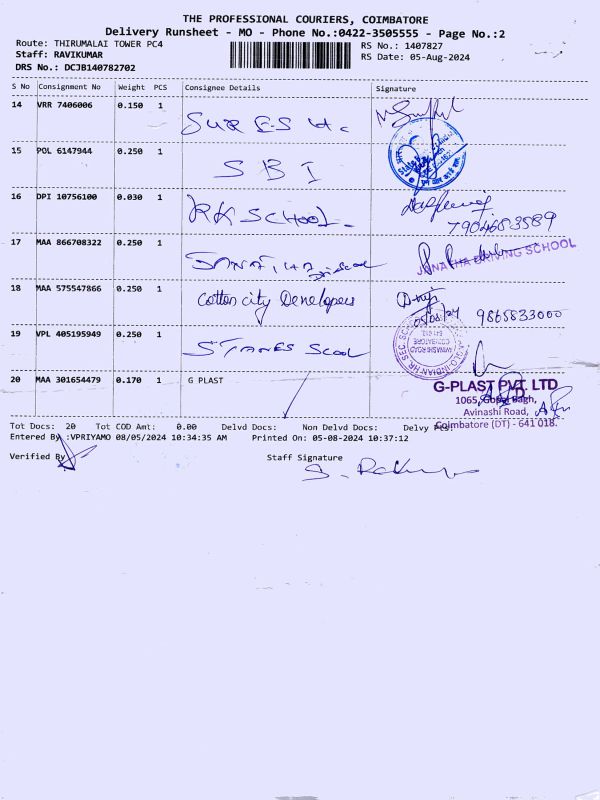 THE PROFESSIONAL COURIERS, COIMBATORE
Delivery Runsheet - MO - Phone No.:0422-3505555 - Page No.:2
Route: THIRUMALAI TOWER PC4
RS No.: 1407827
Staff: RAVIKUMAR
RS Date: 05-Aug-2024
DRS No.: DCJB140782702
S No Consignment No Weight PCS Consignee Details Signature
14 VRR 7406006 0.150 1 SURESH.
15 POL 6147944 0.250 1 SBI
16 DPI 10756100 0.030 1 RKSCHOOL.
7904683589
17 MAA 866708322 0.250 1
JANATHA DRIVING SCHOOL
18 MAA 575547866 0.250 1 Cotton city Developers
05/08/24 9865833000
19 VPL 405195949 0.250 1 STANES SCOOL
ANGLO-INDIAN HR. SEC. SCHOOL
AVINASHI ROAD
COIMBATORE
20 MAA 301654479 0.170 1 G PLAST
G-PLAST PVT. LTD
1065, Gopal Bagh,
Avinashi Road,
Coimbatore (DT) - 641 018.
Tot Docs: 20 Tot COD Amt: 0.00 Delvd Docs: Non Delvd Docs: Delvy Per:
Entered By :VPRIYAMO 08/05/2024 10:34:35 AM Printed On: 05-08-2024 10:37:12
Verified By
Staff Signature